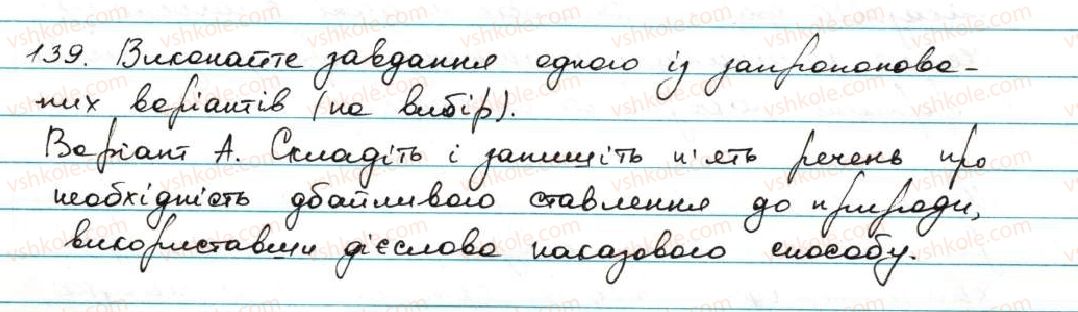 139. Виконайте завдання одного із запропонова-
них варіантів (на вибір).
Варіант А. Складіть і запишіть п'ять речень про
необхідність дбайливого ставлення до природи,
використавши дієслова наказового способу.